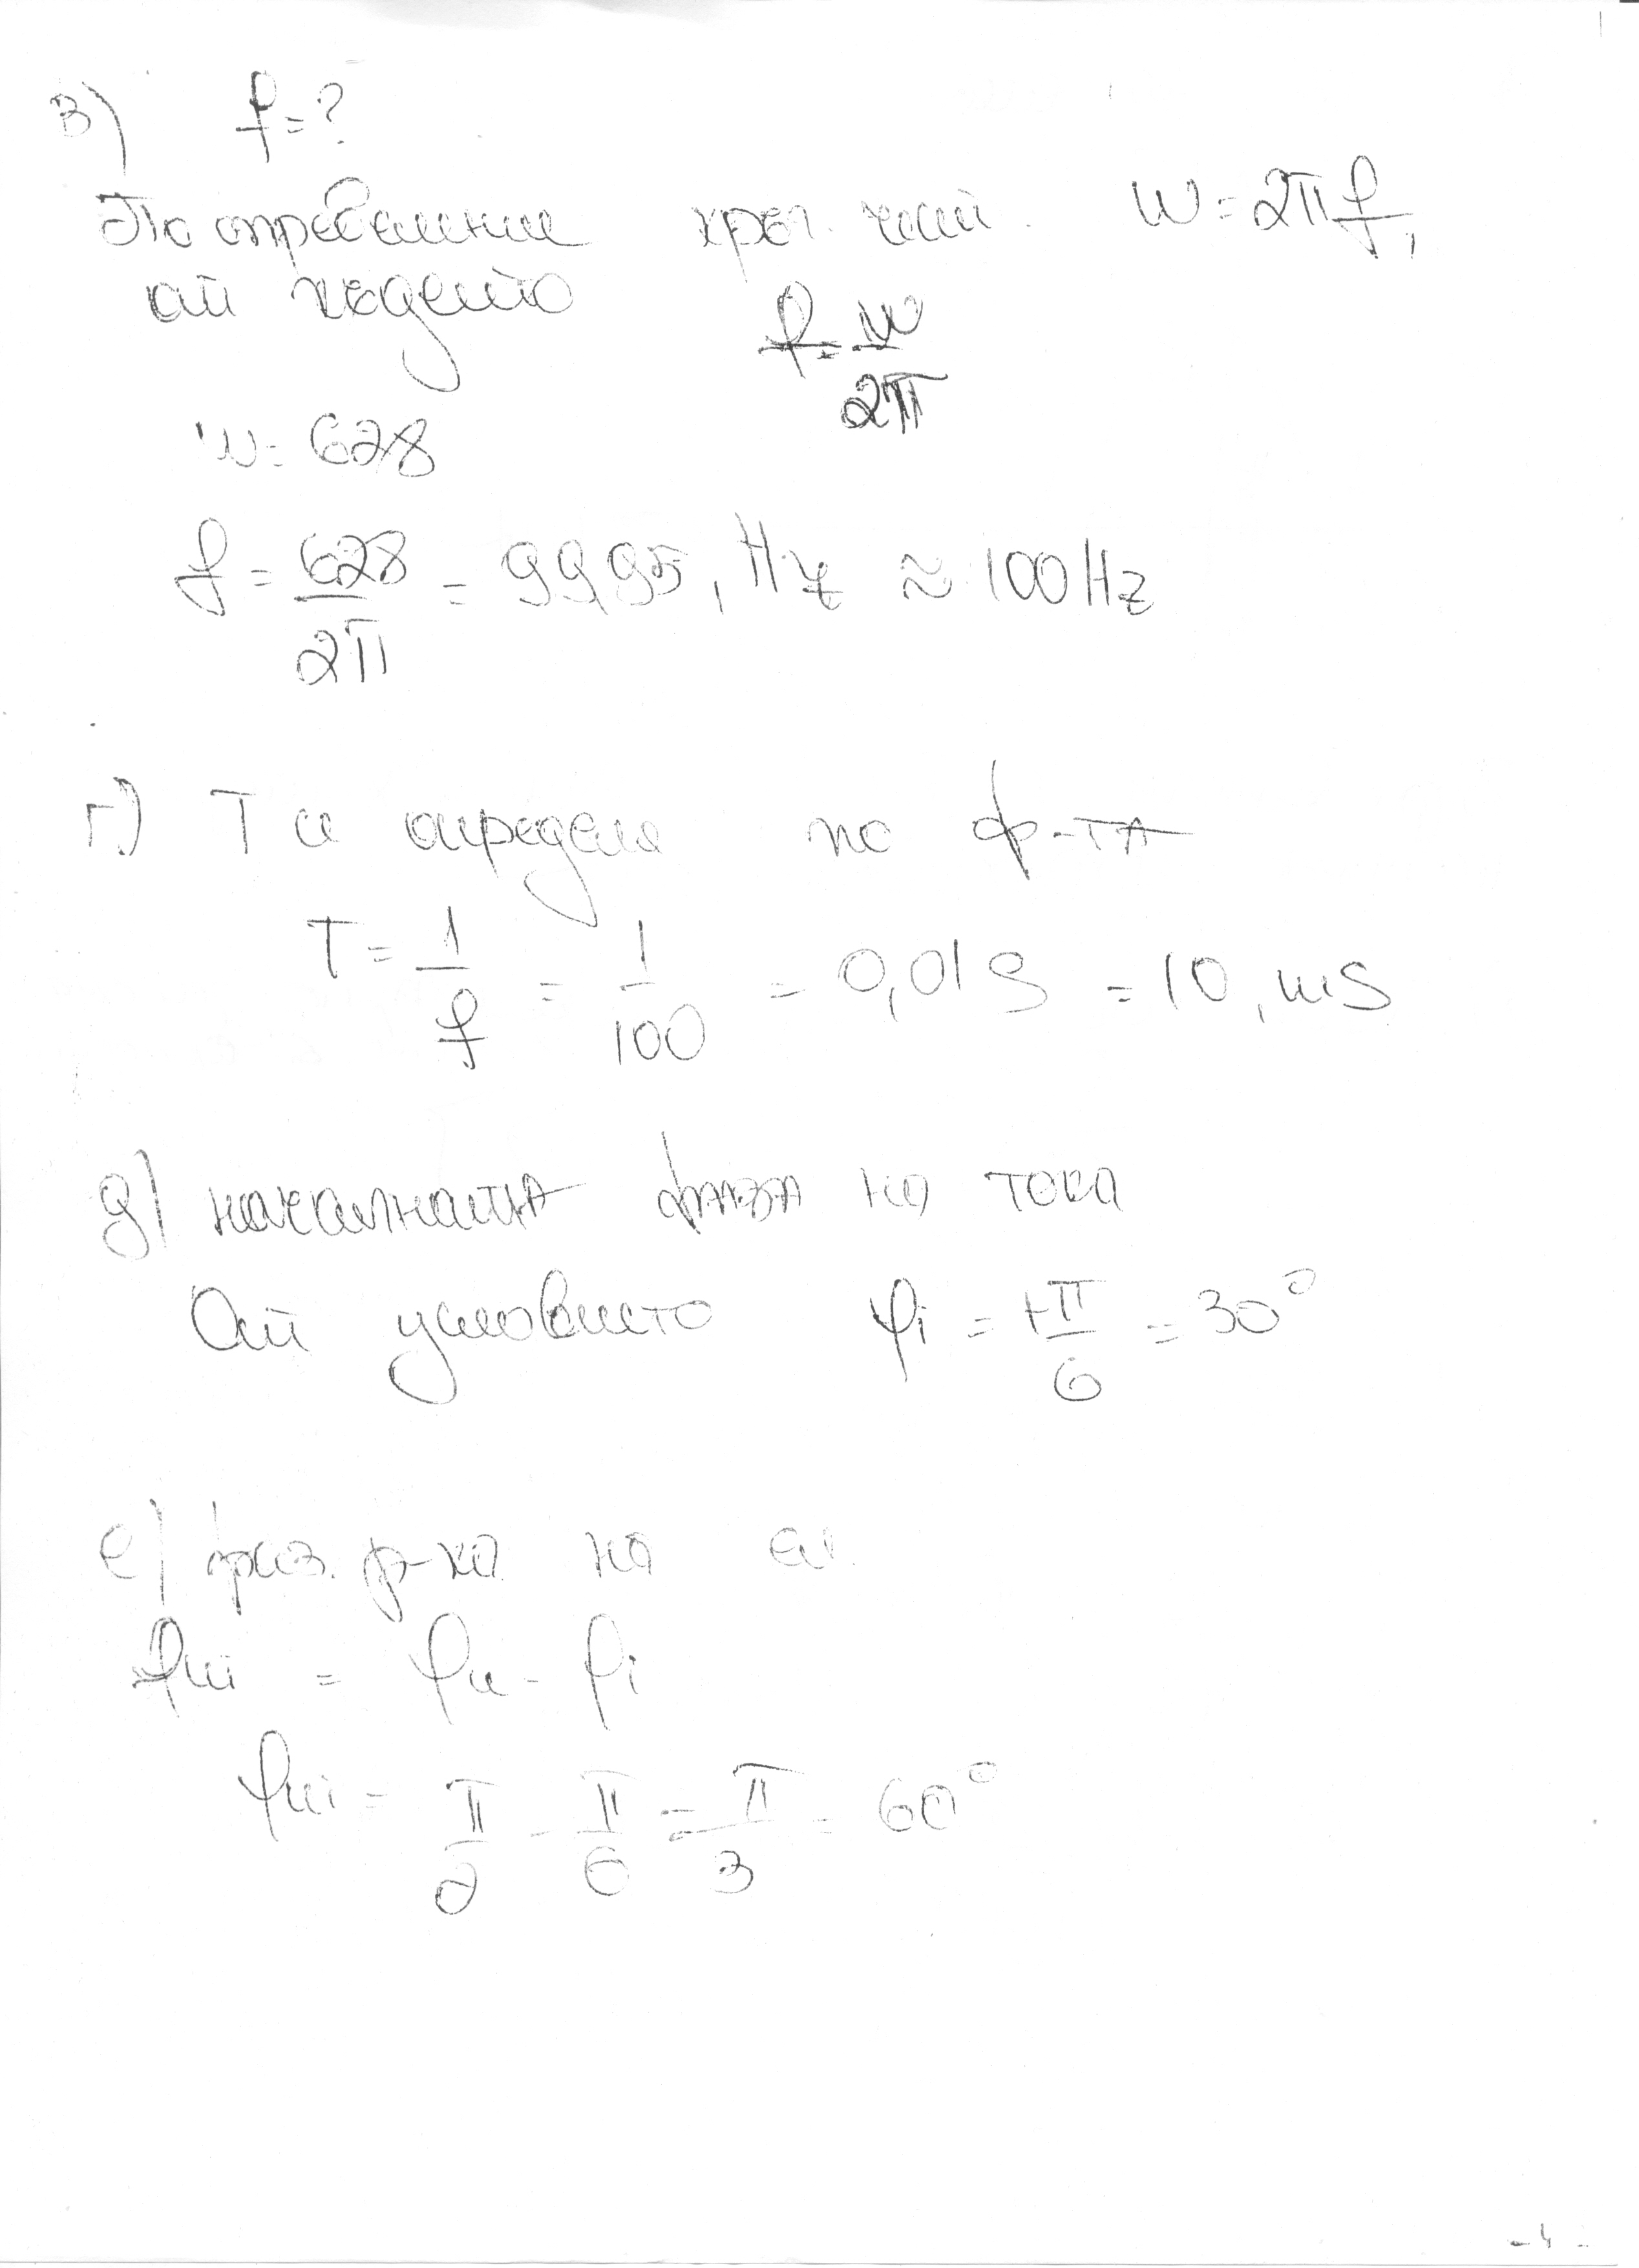 в) f = ?
По определение кръг. чест. ω = 2πf,
от където f = ω/2π
ω = 628
f = 628/2π = 99,95, Hz ≈ 100 Hz
г) T се определя по ф-та
T = 1/f = 1/100 = 0,01 S = 10, mS
д) началната фаза на тока
От условието φi = +π/6 = 30°
е) фаз. р-ка на
φui = φu - φi
φui = π/2 - π/6 = π/3 = 60°